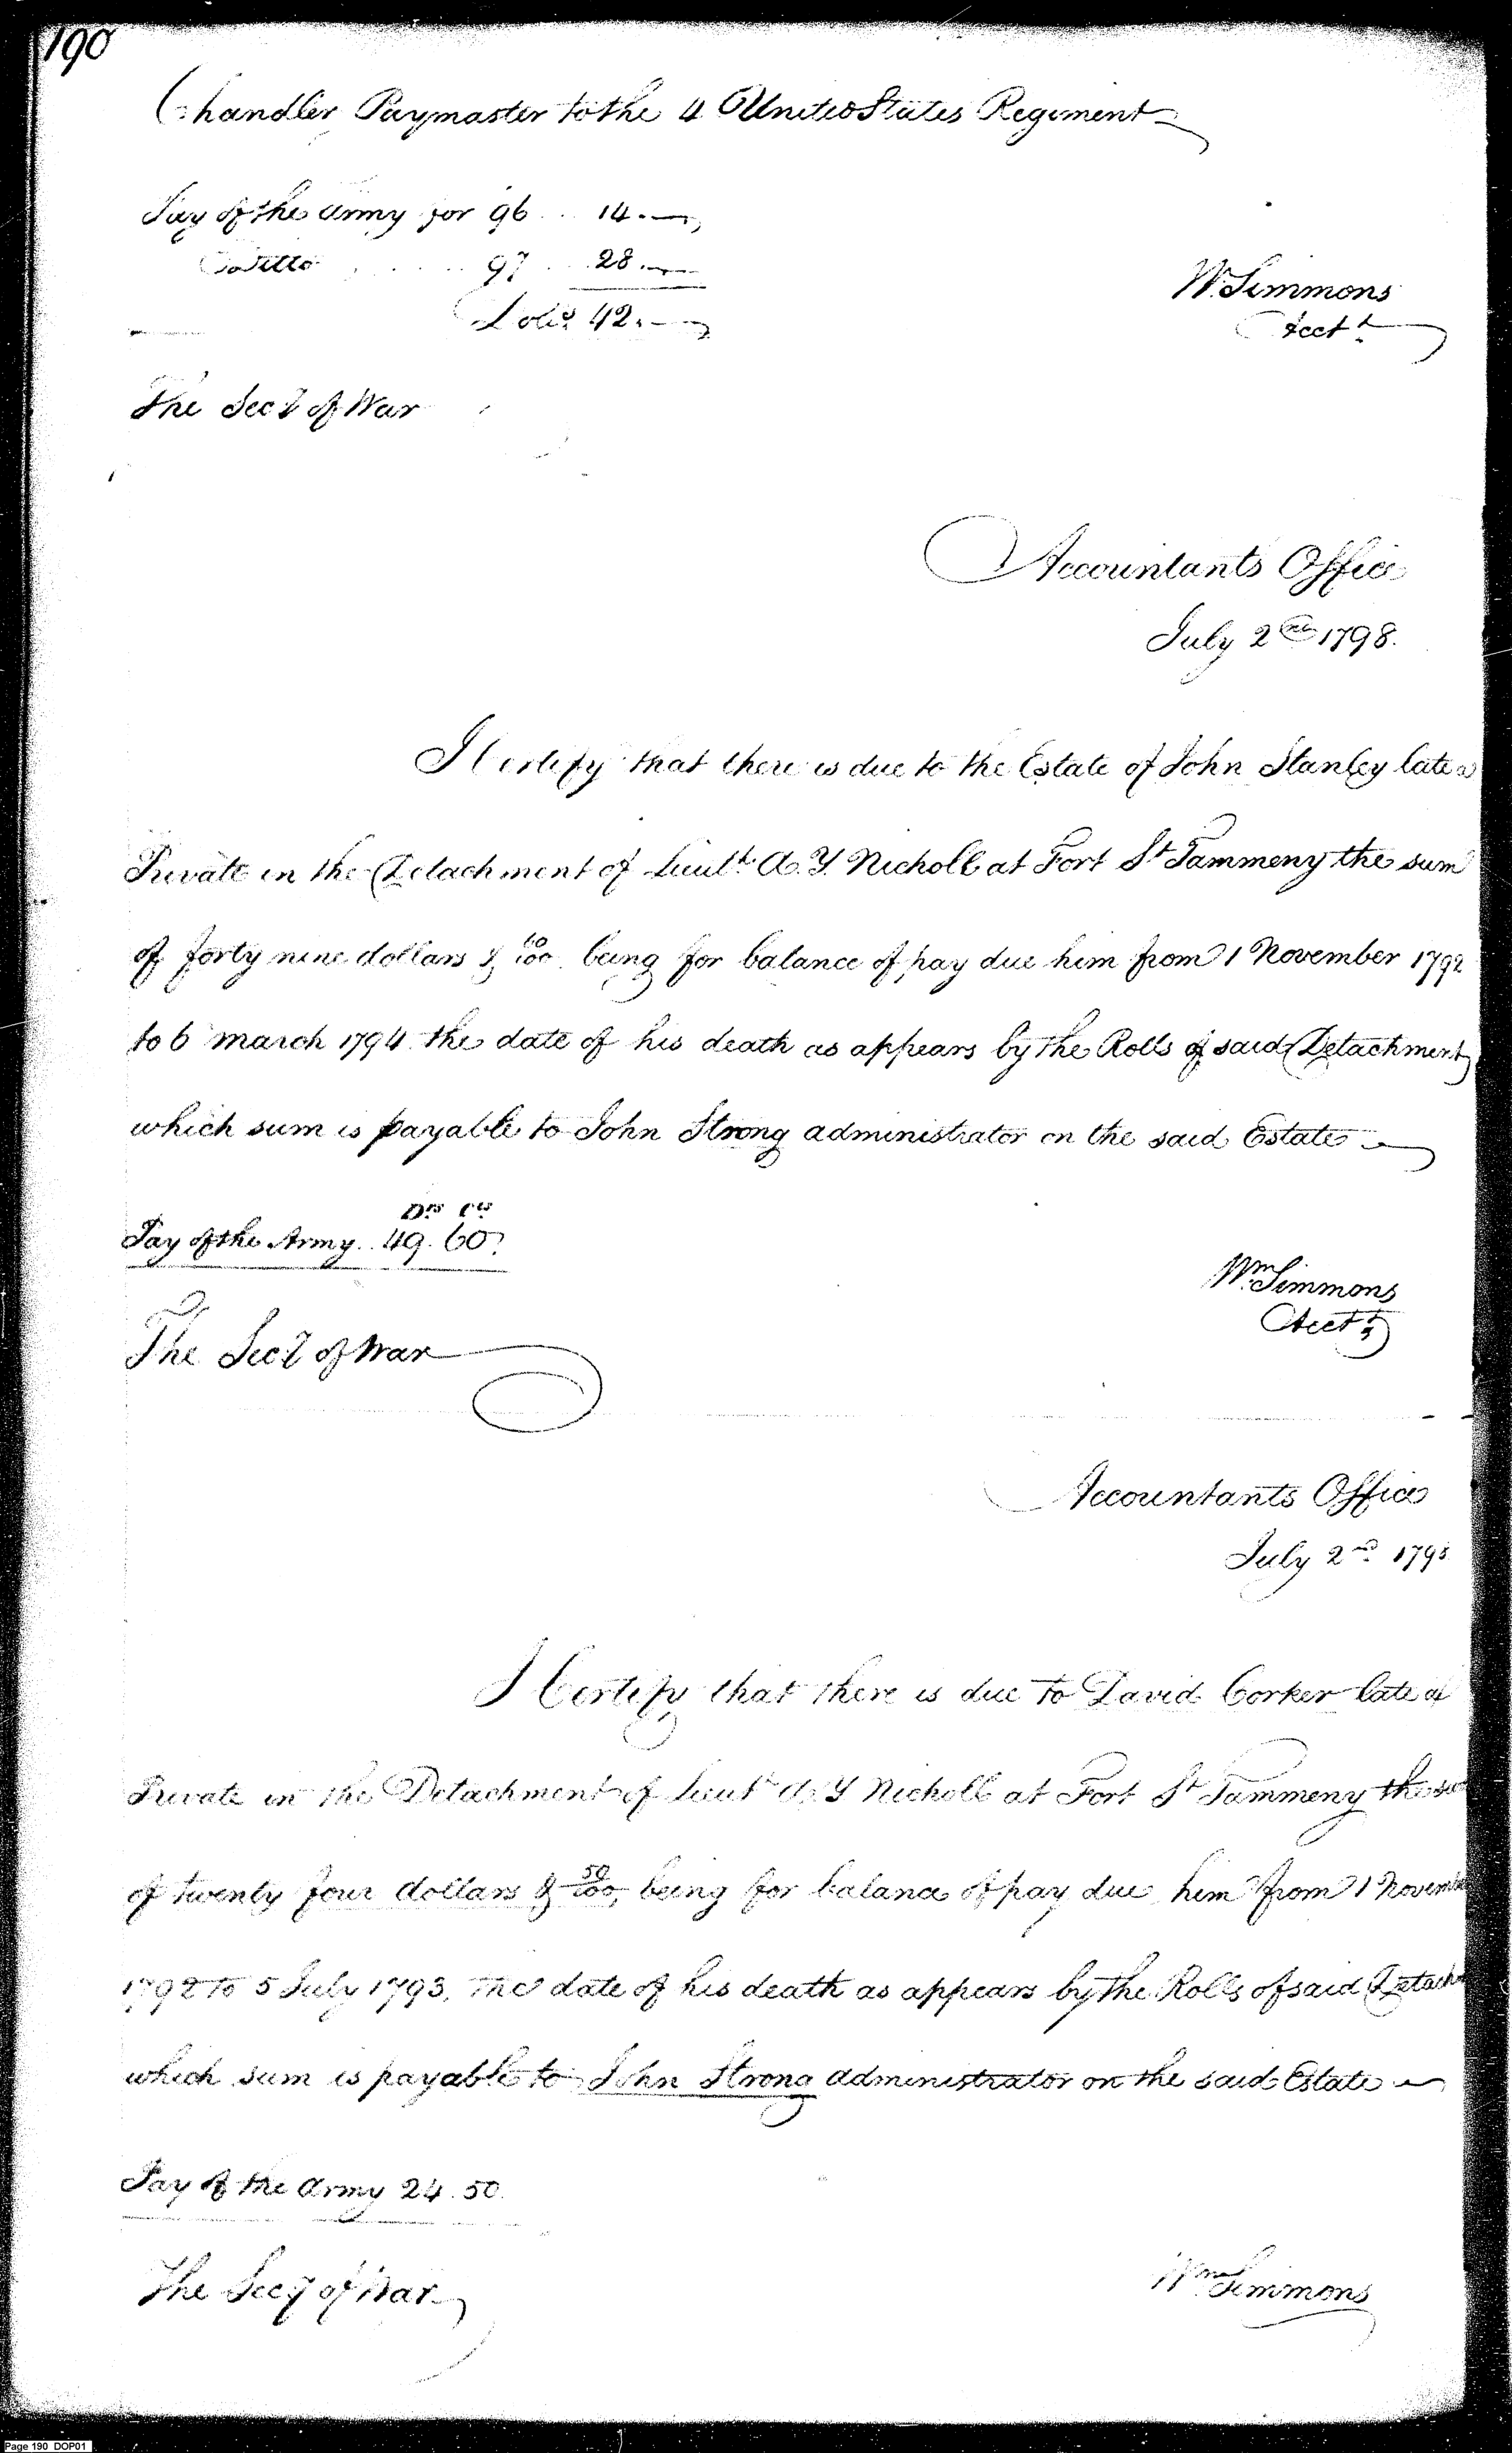 190
Chandler Paymaster to the 4 United States Regiment
Pay of the Army for 96 .. 14. —
Ditto ..... 97 ... 28. —
Dolrs 42. —
Wm Simmons
Acct.t
The Secy of War
Accountants Office
July 2nd 1798.
I Certify that there is due to the Estate of John Stanley late a
Private in the Detachment of Lieut.t A. Y. Nicholl at Fort St Tammeny the sum
of forty nine dollars & 60/100 being for balance of pay due him from 1 November 1792
to 6 march 1794 the date of his death as appears by the Rolls of said Detachment
which sum is payable to John Strong administrator on the said Estate
Drs Cts
Pay of the Army .. 49. 60
Wm Simmons
Acct.t
The Secy of War
Accountants Office
July 2nd 1798
I Certify that there is due to David Corker late a
Private in the Detachment of Lieut.t A. Y Nicholl at Fort St Tammeny the su
of twenty four dollars & 50/100, being for balance of pay due him from 1 Novembe
1792 to 5 July 1793, the date of his death as appears by the Rolls of said Detachm
which sum is payable to John Strong administrator on the said Estate
Pay of the Army 24. 50.
The Secy of War
Wm Simmons
Page 190 DOP01